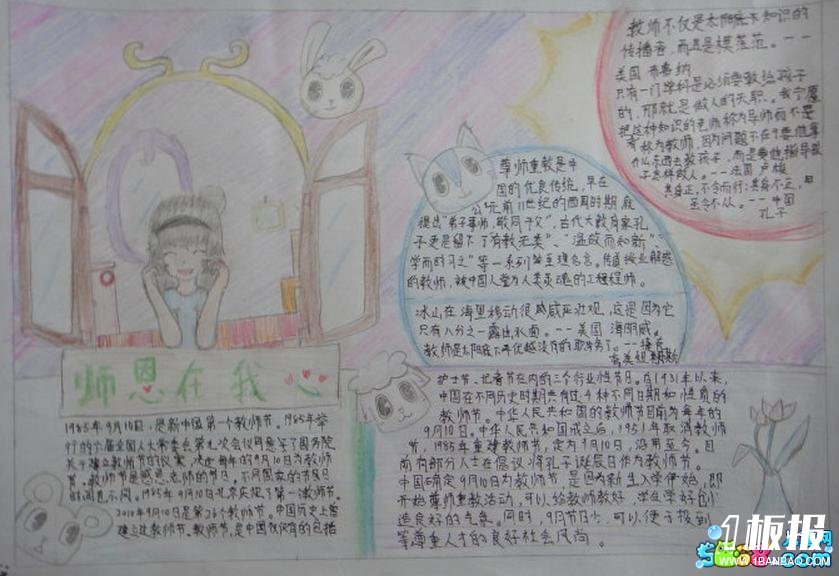 教师不仅是太阳底下知识的
传播者,而且是模范。--
美国 布鲁纳
只有一门学科是必须要教给孩子
的,那就是做人的天职。我宁愿
把这种知识的老师称为导师而不是
称为教师,因为问题不在于要他拿
什么东西去教孩子,而是要他指导孩
子怎样做人。--法国 卢梭
其身正,不令而行;其身不正,虽
至令不从。--中国
孔子
尊师重教是中
国的优良传统,早在
公元前11世纪的西周时期就
提出"弟子事师,敬同于父",古代大教育家孔
子更是留下了"有教无类"、"温故而知新"、
学而时习之"等一系列至理名言。传道授业解惑
的教师,被中国人誉为人类灵魂的工程师。
冰山在海里移动很威严壮观,这是因为它
只有八分之一露出水面。--美国 海明威。
教师是太阳底下再优越没有的职务了。--捷克
夸美纽斯
师恩在我心
1985年9月10日,是新中国第一个教师节。1985年举
行的六届全国人大常委会第九次会议同意了国务院
关于建立教师节的议案,决定每年的9月10日为教师
节。教师节是感恩老师的节日。不同国家的节日
时间也不同。1985年9月10日北京庆祝了第一教师节。
2010年9月10日是第26个教师节。中国历史上曾
建立过教师节。教师节,是中国仅有的包括
护士节、记者节在内的三个行业性节日。在1931年以来,
中国在不同历史时期共有过4种不同日期和性质的
教师节。中华人民共和国的教师节目前为每年的
9月10日。中华人民共和国成立后,1951年取消教师
节,1985年重建教师节,定为9月10日,沿用至今。目
前有部分人士在倡议将孔子诞辰日作为教师节。
中国确定9月10日为教师节,是因为新生入学伊始,即
开始尊师重教活动,可以给教师教好、学生学好创
造良好的气氛。同时,9月节日少,可以便于
等尊重人才的良好社会风尚。
1板报
WWW.1BANBAO.COM